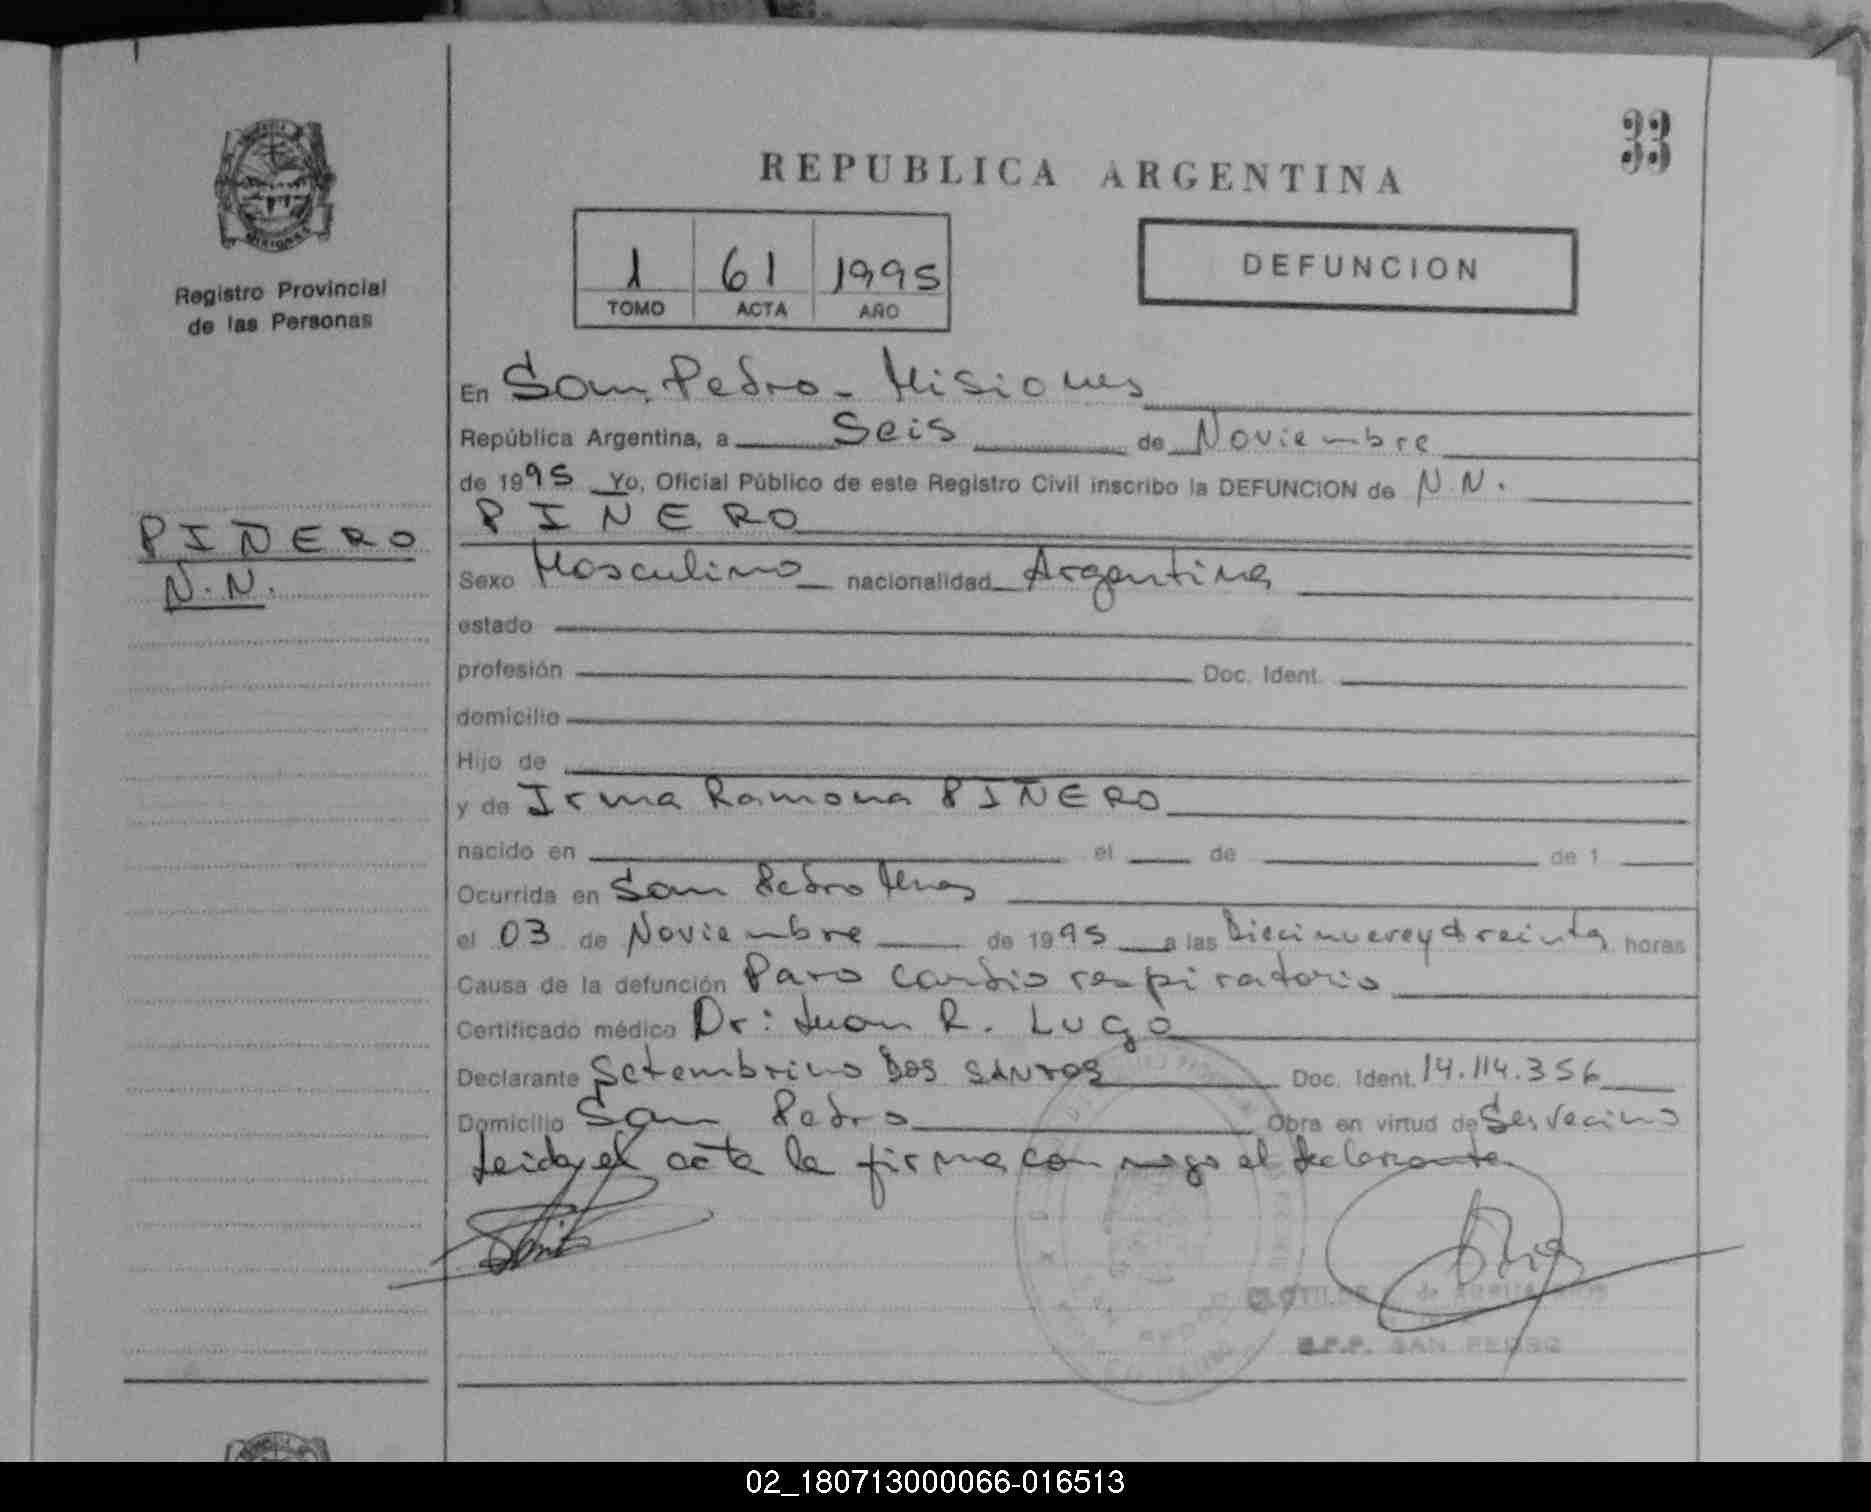 33
REPUBLICA ARGENTINA
MISIONES
Registro Provincial
de las Personas
1 61 1995
TOMO ACTA AÑO
DEFUNCION
En San Pedro - Misiones
República Argentina, a Seis de Noviembre
de 1995 Yo, Oficial Público de este Registro Civil inscribo la DEFUNCION de N.N.
PIÑERO
PIÑERO
N.N.
Sexo Masculino nacionalidad Argentina
estado
profesión Doc. Ident.
domicilio
Hijo de
y de Irma Ramona PIÑERO
nacido en el de de 1
Ocurrida en San Pedro Mnes
el 03 de Noviembre de 1995 a las Diecinueve y treinta horas
Causa de la defunción Paro cardio respiratorio
Certificado médico Dr: Juan R. Lugo
Declarante Setembrino DOS SANTOS Doc. Ident. 14.114.356
Domicilio San Pedro Obra en virtud de Ser vecino
Leida el acta la firma con migo el declarante
SAN PEDRO
02_180713000066-016513